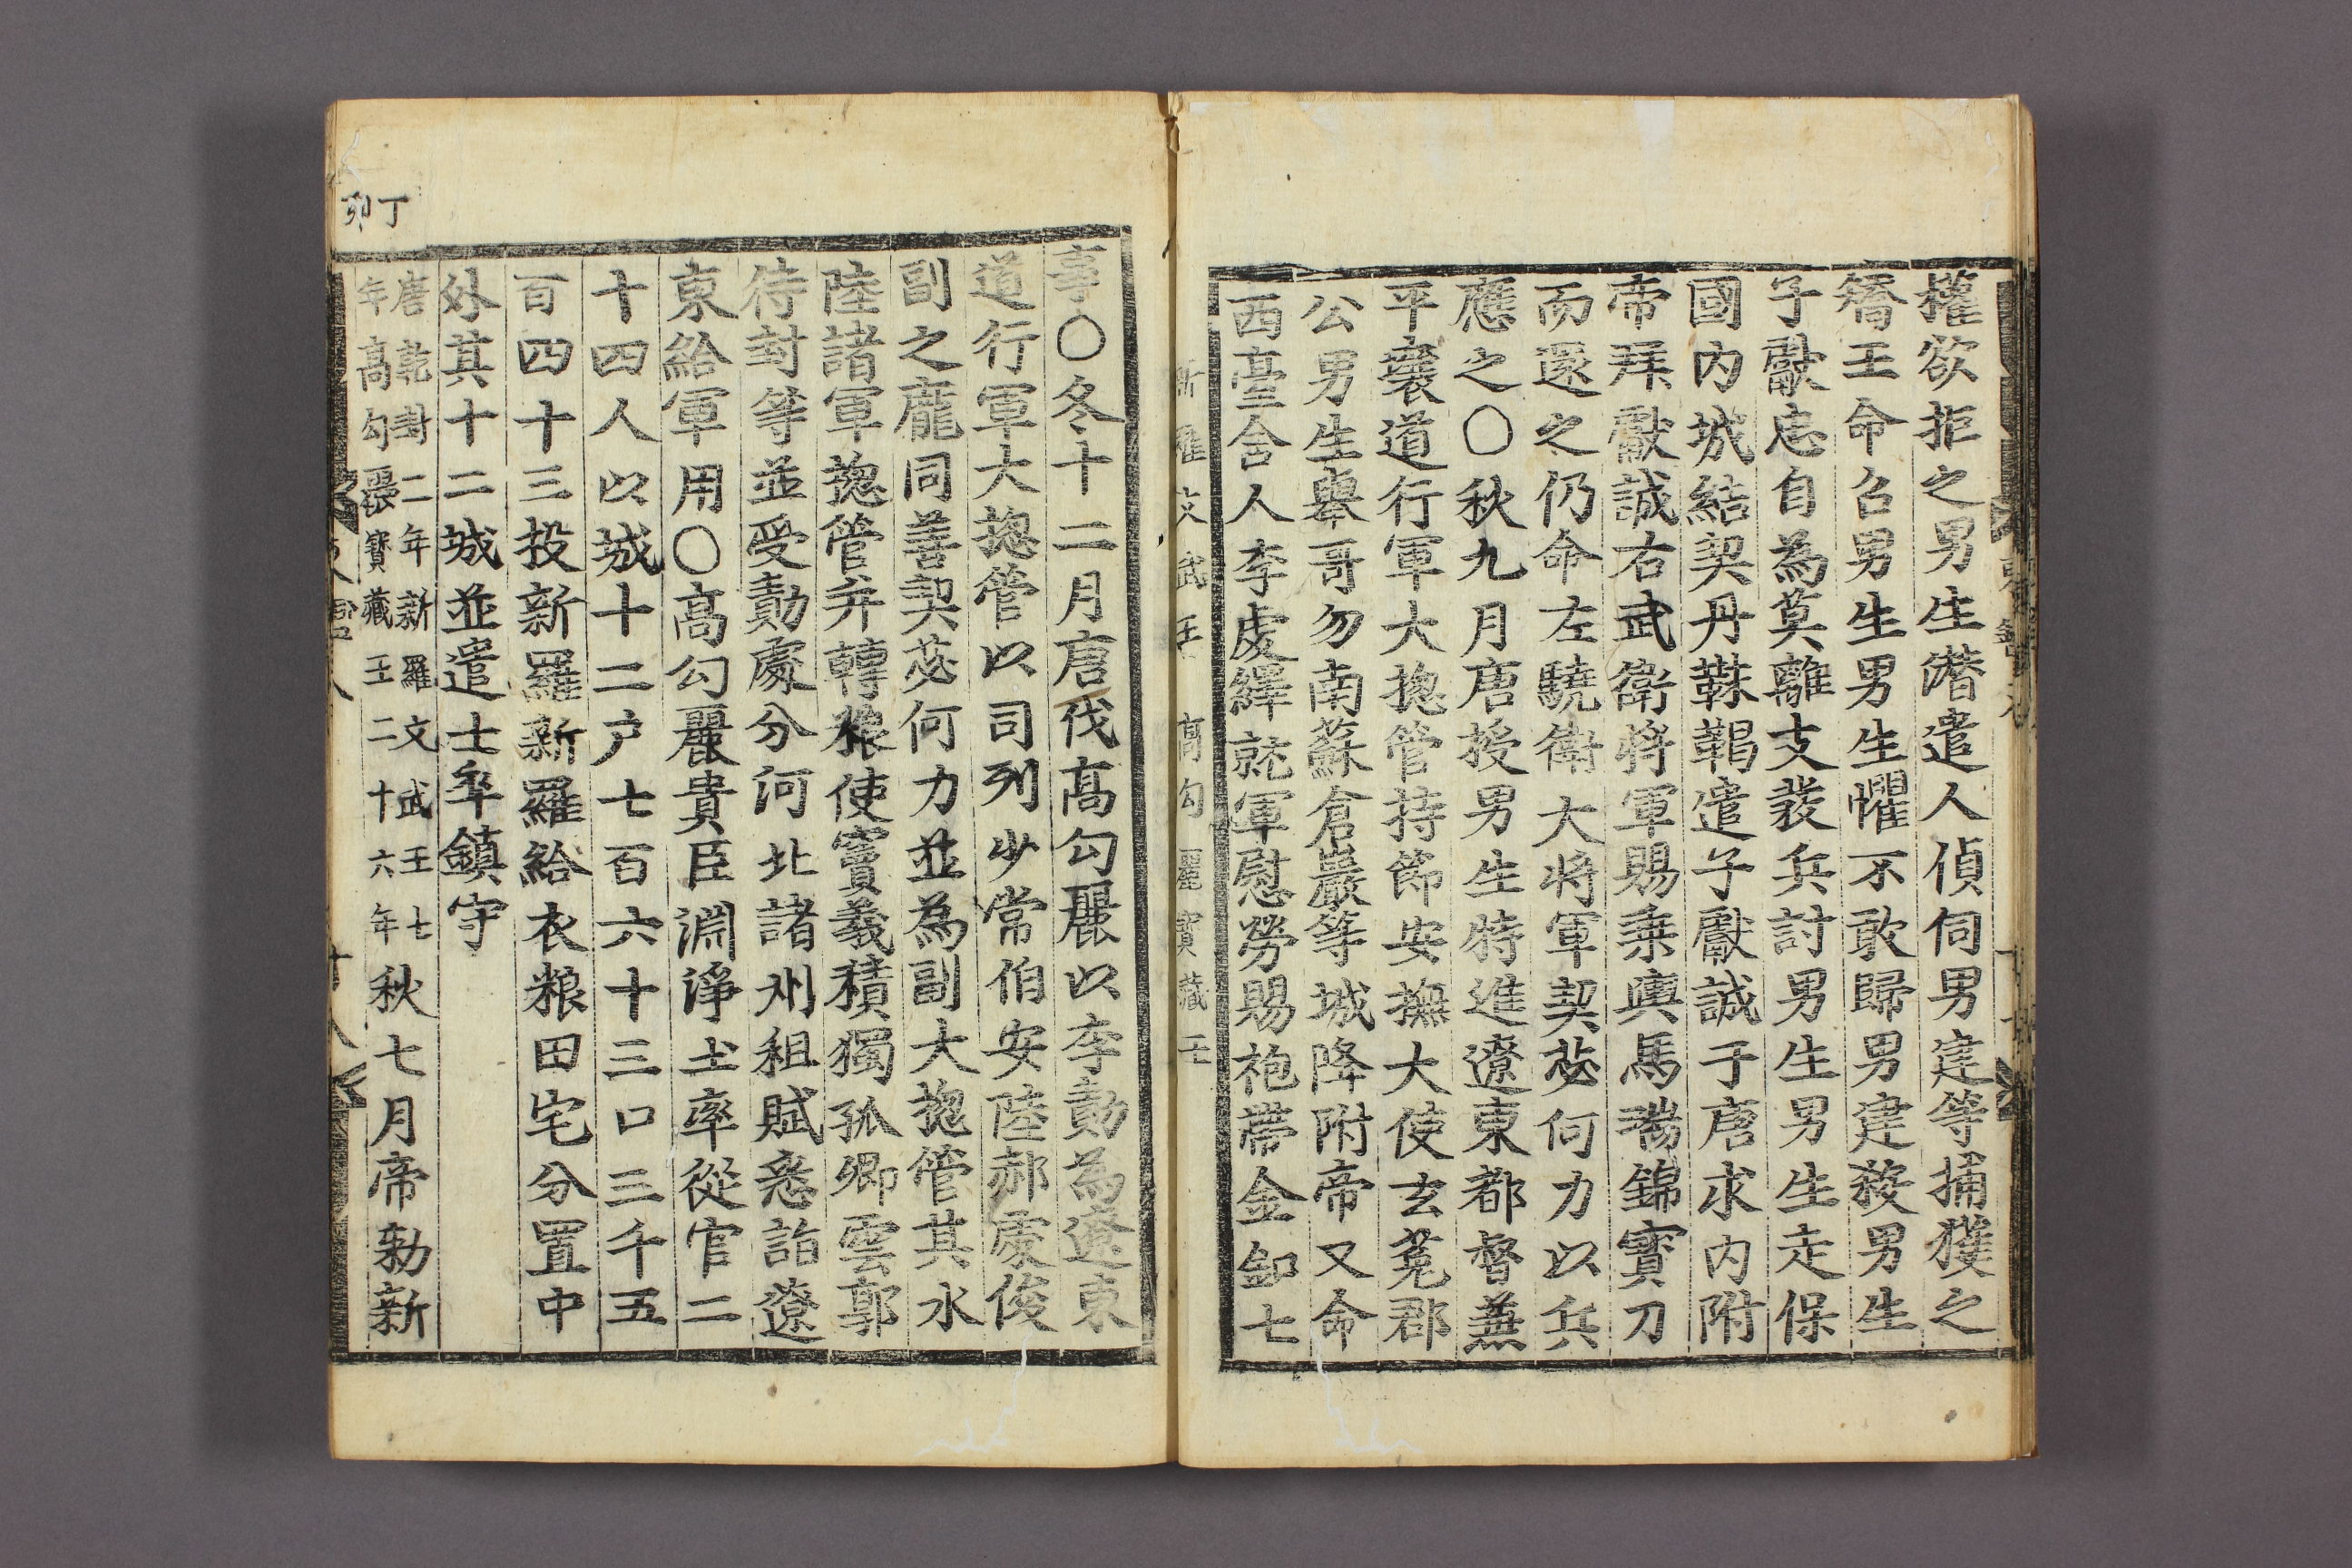 權欲拒之男生潛遣人偵伺男建等捕獲之
矯王命召男生男生懼不敢歸男建殺男生
子獻忠自為莫離支發兵討男生男生走保
國內城結契丹靺鞨遣子獻誠于唐求內附
帝拜獻誠右武衛將軍賜乘輿馬瑞錦寶刀
而還之仍命左驍衛大将軍契苾何力以兵
應之○秋九月唐授男生特進遼東都督兼
平壤道行軍大揔管持節安撫大使玄菟郡
公男生舉哥勿南蘇倉巖等城降附帝又命
西臺舍人李虔繹就軍慰勞賜袍帶金釦七
新羅文武王 高勾麗寶藏王
事○冬十二月唐伐髙勾麗以李勣為遼東
道行軍大揔管以司列少常伯安陸郝處俊
副之龐同善契苾何力並為副大揔管其水
陸諸軍揔管并轉粮使竇義積獨孤卿雲郭
待封等並受勣處分河北諸州租賦悉詣遼
東給軍用○髙勾麗貴臣淵淨土率從官二
十四人以城十二戶七百六十三口三千五
百四十三投新羅新羅給衣粮田宅分置中
外其十二城並遣士卒鎮守
丁卯
唐乾封二年新羅文武王七
年髙勾麗寶藏王二十六年秋七月帝勑新